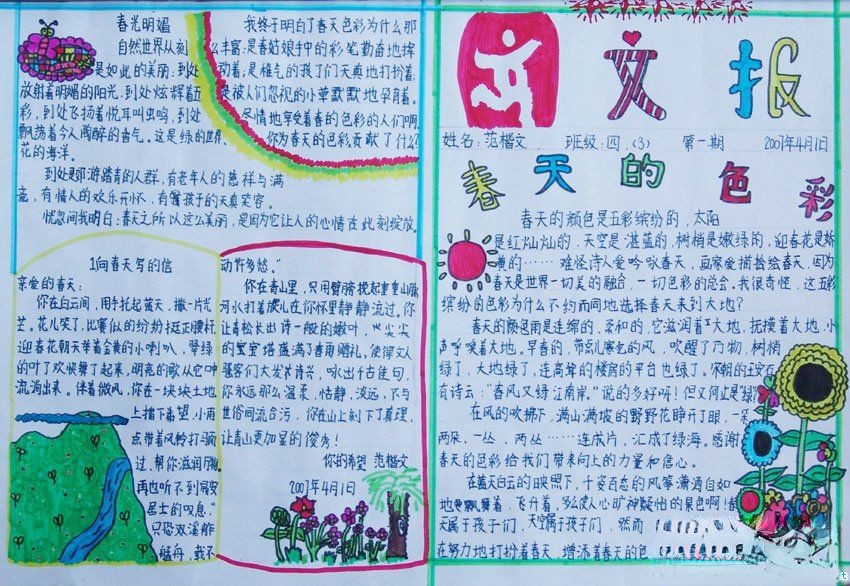 春光明媚
自然世界从刻
是如此的美丽。到处
放射着明媚的阳光，到处炫辉着五
彩，到处飞扬着悦耳叫虫鸣，到处
飘荡着令人陶醉的香气。这是绿的世界，
花的海洋。
到处是郊游踏青的人群，有老年人的慈祥与满
有情人的欢乐开怀，有
孩子的天真笑容。
恍忽间我明白：春天之所以这么美丽，是因为它让人的心情在此刻绽放。
我终于明白了春天色彩为什么那
么丰富：是春姑娘手中的彩笔勤奋地挥
动着；是稚气的孩子们天真地打扮着；
是被人们忽视的小草默默地孕育着。
尽情地享受着春的色彩的人们啊，
你为春天的色彩贡献了什么？
1向春天写的信
亲爱的春天：
你在白云间，用手托起蓝天，撒一片光
芒。花儿笑了，比赛似的纷纷挺正腰杆
迎春花朝天举着金黄的小喇叭，翠绿
的叶了欢快舞了起来，明亮的歌从它口中
流淌出来。伴着微风，你在一块块土地
上描下希望，小雨
点带着风铃打马而
过，帮你滋润万物。
再也听不到易安
居士的叹息。"
只恐双溪舴
艋舟，载不
动许多愁。"
你在青山里，只用臂膀挽起重重山脉
河水打着旋儿在你怀里静静流过。你
让青松长出诗一般的嫩叶，
尖尖
的宝塔盛满了春雨赠礼，使得文人
骚客们大发诗兴，咏出千古佳句，
你永远那么温柔，恬静，淡远，不与
世俗同流合污，你在山上刻下了真理，
让青山更加显的俊秀！
你的希望 范楷文
2007年4月1日
语文报
姓名：范楷文 班级：四.(3) 第一期 2007年4月1日
春天的色彩
春天的颜色是五彩缤纷的，太阳
是红灿灿的，天空是湛蓝的，树梢是嫩绿的，迎春花是娇
黄的……难怪诗人爱吟咏春天，画家爱描摹绘春天，因为
春天是世界一切美的融合，一切色彩的总会。我很奇怪，这五彩
缤纷的色彩为什么不约而同地选择春天来到大地？
春天的颜色雨是连绵的、柔和的，它滋润着大地，抚摸着大地，小
声呼唤着大地。早春的，带点儿寒气的风，吹醒了万物，树梢
绿了，大地绿了，连高耸的楼房的平台也绿了，宋朝的王安石
有诗云："春风又绿江南岸，"说的多好啊！但又何止是绿
在风的吹拂下，满山满坡的野野花睁开了眼，一朵
两朵、一丛、两丛……连成片，汇成了绿海。感谢
春天的色彩给我们带来向上的力量和信心。
在蓝天白云的映照下，千姿百态的风筝潇洒自如
地飘舞着，飞升着，多么使人心旷神怡的景色啊！春
天属于孩子们，天空属于孩子们，然而
在努力地打扮着春天，增添着春天的色